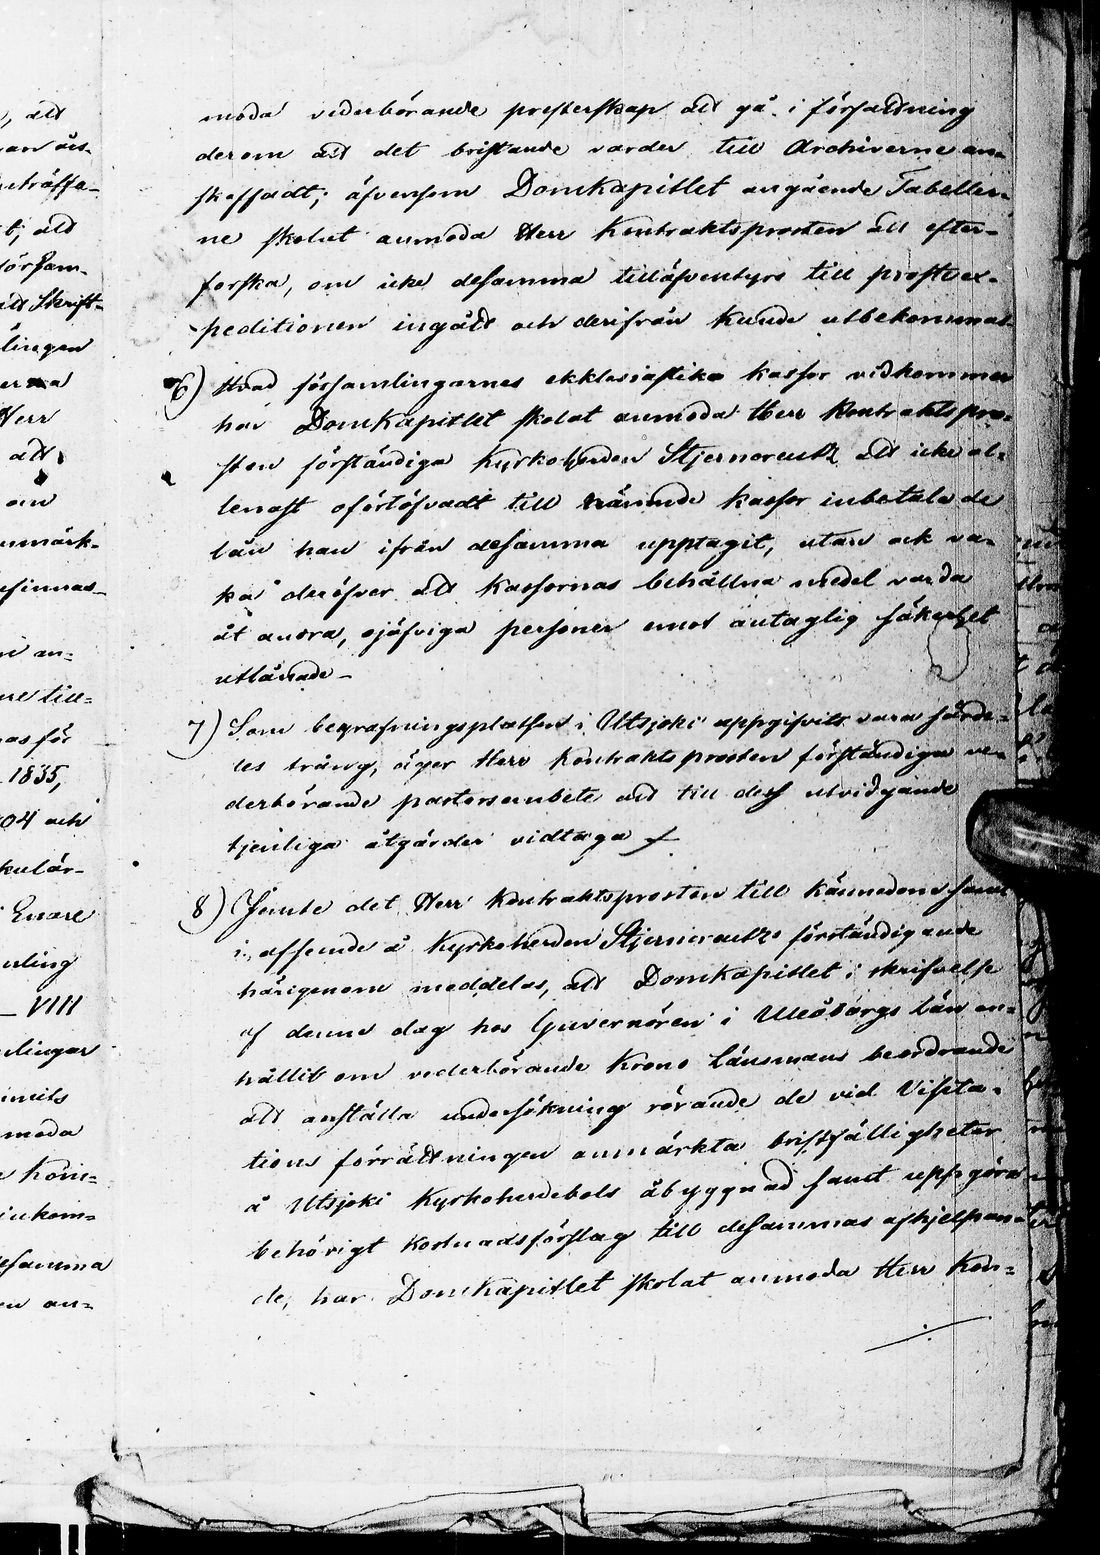 moda vederbörande presterskap att gå i författning
derom att det bristande varder till Archiverne an-
skaffadt; äfvensom DomKapitlet angående Tabeller-
ne skolat anmoda Herr Kontraktsprosten att efter-
forska, om icke desamma tilläfventyrs till prostex-
peditionen ingått och derifrån kunde utbekommas.
6) Hvad församlingarnes ekklesiastika kassor vidkommer
har DomKapitlet skolat anmoda Herr Kontraktspro-
sten förständiga Kyrkoherden Stjerncreutz att icke al-
lenast oförtöfvadt till nämnde kassor inbetala de
lån han ifrån desamma upptagit, utan ock va-
ka deröfver att kassornas behållna medel varda
åt andra, ojäfviga personer emot antaglig säkerhet
utlånade_
7) Som begrafningsplatsen i Utsjoki uppgifvits vara särde-
les trång, äger Herr Kontraktsprosten förständiga ve-
derbörande pastorsembete att till dess utvidgande
tjenliga åtgärder vidtaga
8) Jemte det Herr Kontraktsprosten till kännedom samt
i afseende å Kyrkoherden Stjerncreutz's förständigande
härigenom meddelas, att DomKapitlet i skrifvelse
af denne dag hos Guvernören i Uleåborgs län an-
hållit om vederbörande Krono Länsmans beordrande
att anställa undersökning rörande de vid Visita-
tions förrättningen anmärkta bristfälligheter
å Utsjoki Kyrkoherdebols åbyggnad samt uppgöra
behörigt kostnadsförslag till desammas afhjelpan-
de, har DomKapitlet skolat anmoda Herr Kon-
, att
t; att
församl-
Skrift-
lingen
Herr
att
om
anmärk-
efinnas_
an-
till-
1835,
04 och
Enare
VIII
moda
esamma
an-